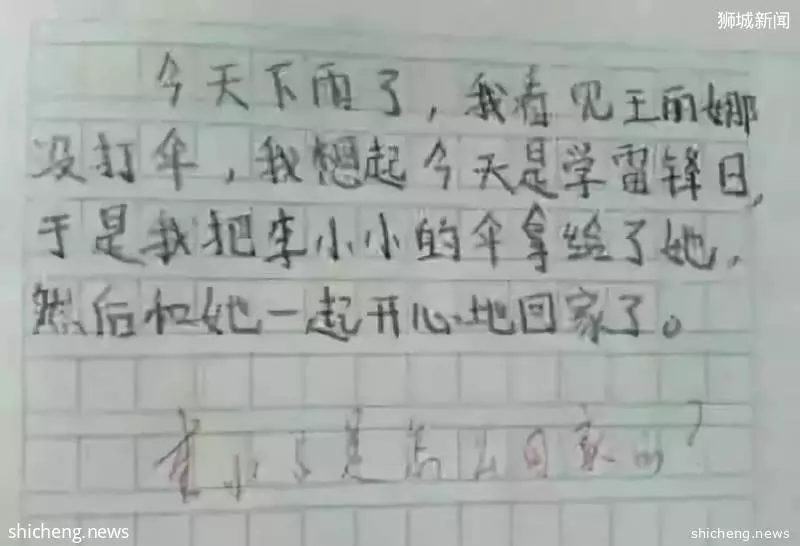 狮城新闻
今天下雨了，我看见王丽娜
没打伞，我想起今天是学雷锋日，
于是我把李小小的伞拿给了她，
然后和她一起开心地回家了。
李小小是怎么回家的？
shicheng.news
shicheng.news